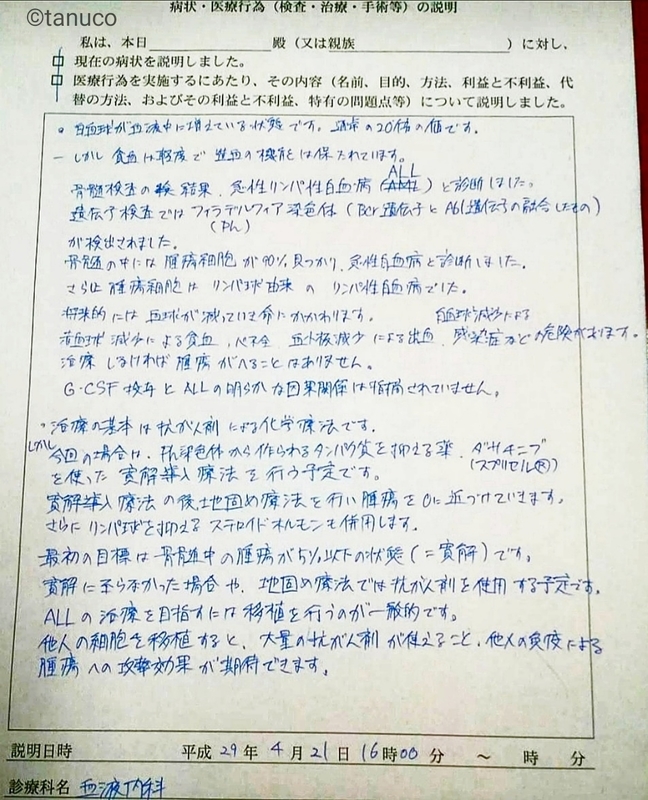 ©tanuco
病状・医療行為（検査・治療・手術等）の説明
私は、本日 殿（又は親族 ）に対し、
□ 現在の病状を説明しました。
□ 医療行為を実施するにあたり、その内容（名前、目的、方法、利益と不利益、代
替の方法、およびその利益と不利益、特有の問題点等）について説明しました。
• 白血球が血液中に増えている状態です。通常の20倍の値です。
しかし貧血は軽度で 造血の機能は保たれています。
ALL
骨髄検査の 結果、急性リンパ性白血病（ ）と診断しました。
遺伝子検査ではフィラデルフィア染色体（Bcr遺伝子とAbl遺伝子の融合したもの）
(Ph)
が検出されました。
骨髄の中には腫瘍細胞が90%見つかり、急性白血病と診断しました。
さらに腫瘍細胞はリンパ球由来のリンパ性白血病でした。
将来的には血球が減っていき命にかかわります。 白血球減少による
赤血球減少による貧血、心不全 血小板減少による出血、感染症などの危険があります。
治療しなければ腫瘍がへることはありません。
G-CSF投与とALLの明らかな因果関係は指摘されていません。
• 治療の基本は抗がん剤による化学療法です。
しかし
今回の場合は、Ph染色体から作られるタンパク質を抑える薬、ダサチニブ
(スプリセル®)
を使った寛解導入療法を行う予定です。
寛解導入療法の後、地固め療法を行い腫瘍を0に近づけていきます。
さらにリンパ球を抑えるステロイドホルモンも併用します。
最初の目標は骨髄中の腫瘍が5%以下の状態（=寛解）です。
寛解に至らなかった場合や、地固め療法では抗がん剤を使用する予定です。
ALLの治療を目指すには移植を行うのが一般的です。
他人の細胞を移植すると、大量の抗がん剤が使えること、他人の免疫による
腫瘍への攻撃効果が期待できます。
説明日時 平成 29 年 4 月 21 日 16 時 00 分 ～ 時 分
診療科名 血液内科